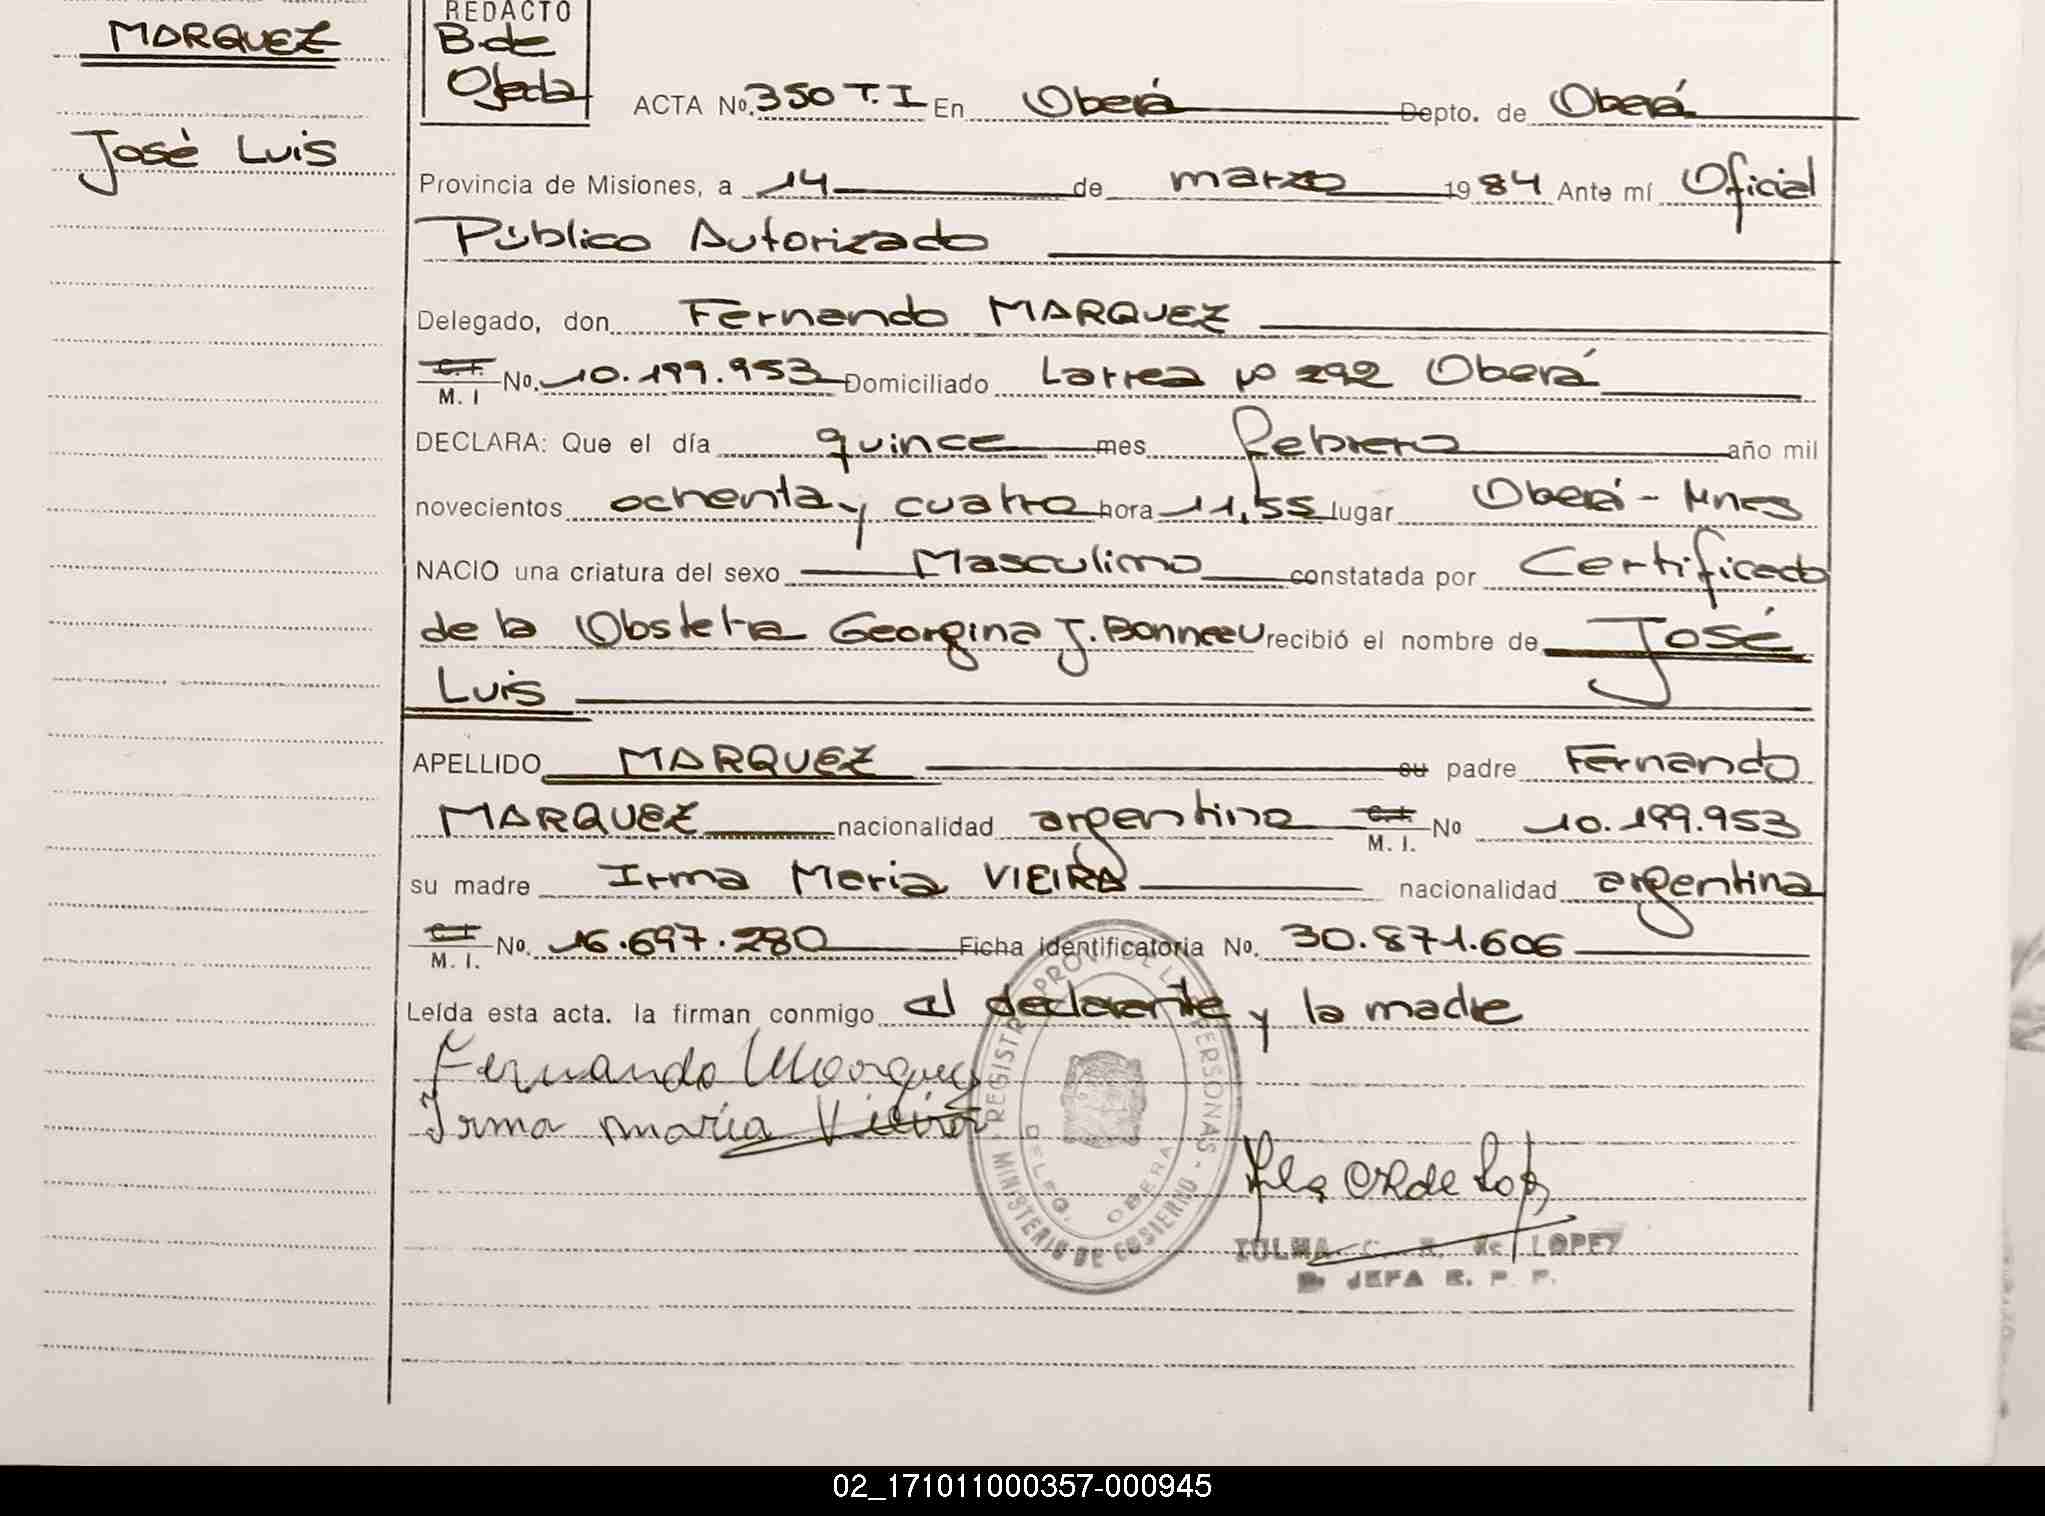 MARQUEZ
José Luis
REDACTO
B. de
Ojeda
ACTA No. 350 T. I En Oberá Depto. de Oberá
Provincia de Misiones, a 14 de marzo 1984 Ante mí Oficial
Público Autorizado
Delegado, don Fernando MARQUEZ
C. I.
M. I No. 10.199.953 Domiciliado Larrea Nº 292 Oberá
DECLARA: Que el día quince mes febrero año mil
novecientos ochenta y cuatro hora 11,55 lugar Oberá - Mnes
NACIO una criatura del sexo Masculino constatada por Certificado
de la Obstetra Georgina J. Bonneau recibió el nombre de José
Luis
APELLIDO MARQUEZ su padre Fernando
MARQUEZ nacionalidad argentina C. I. M. I. No 10.199.953
su madre Irma Maria VIEIRA nacionalidad argentina
C. I.
M. I. No. 16.697.280 Ficha identificatoria No. 30.871.606
Leída esta acta. la firman conmigo el declarante y la madre
Fernando Marquez
Irma maria Vieira
REGISTRO PROV. DE LAS PERSONAS - MINISTERIO DE GOBIERNO
DELEG. OBERA
de LOPEZ
JEFA R. P. P.
02_171011000357-000945